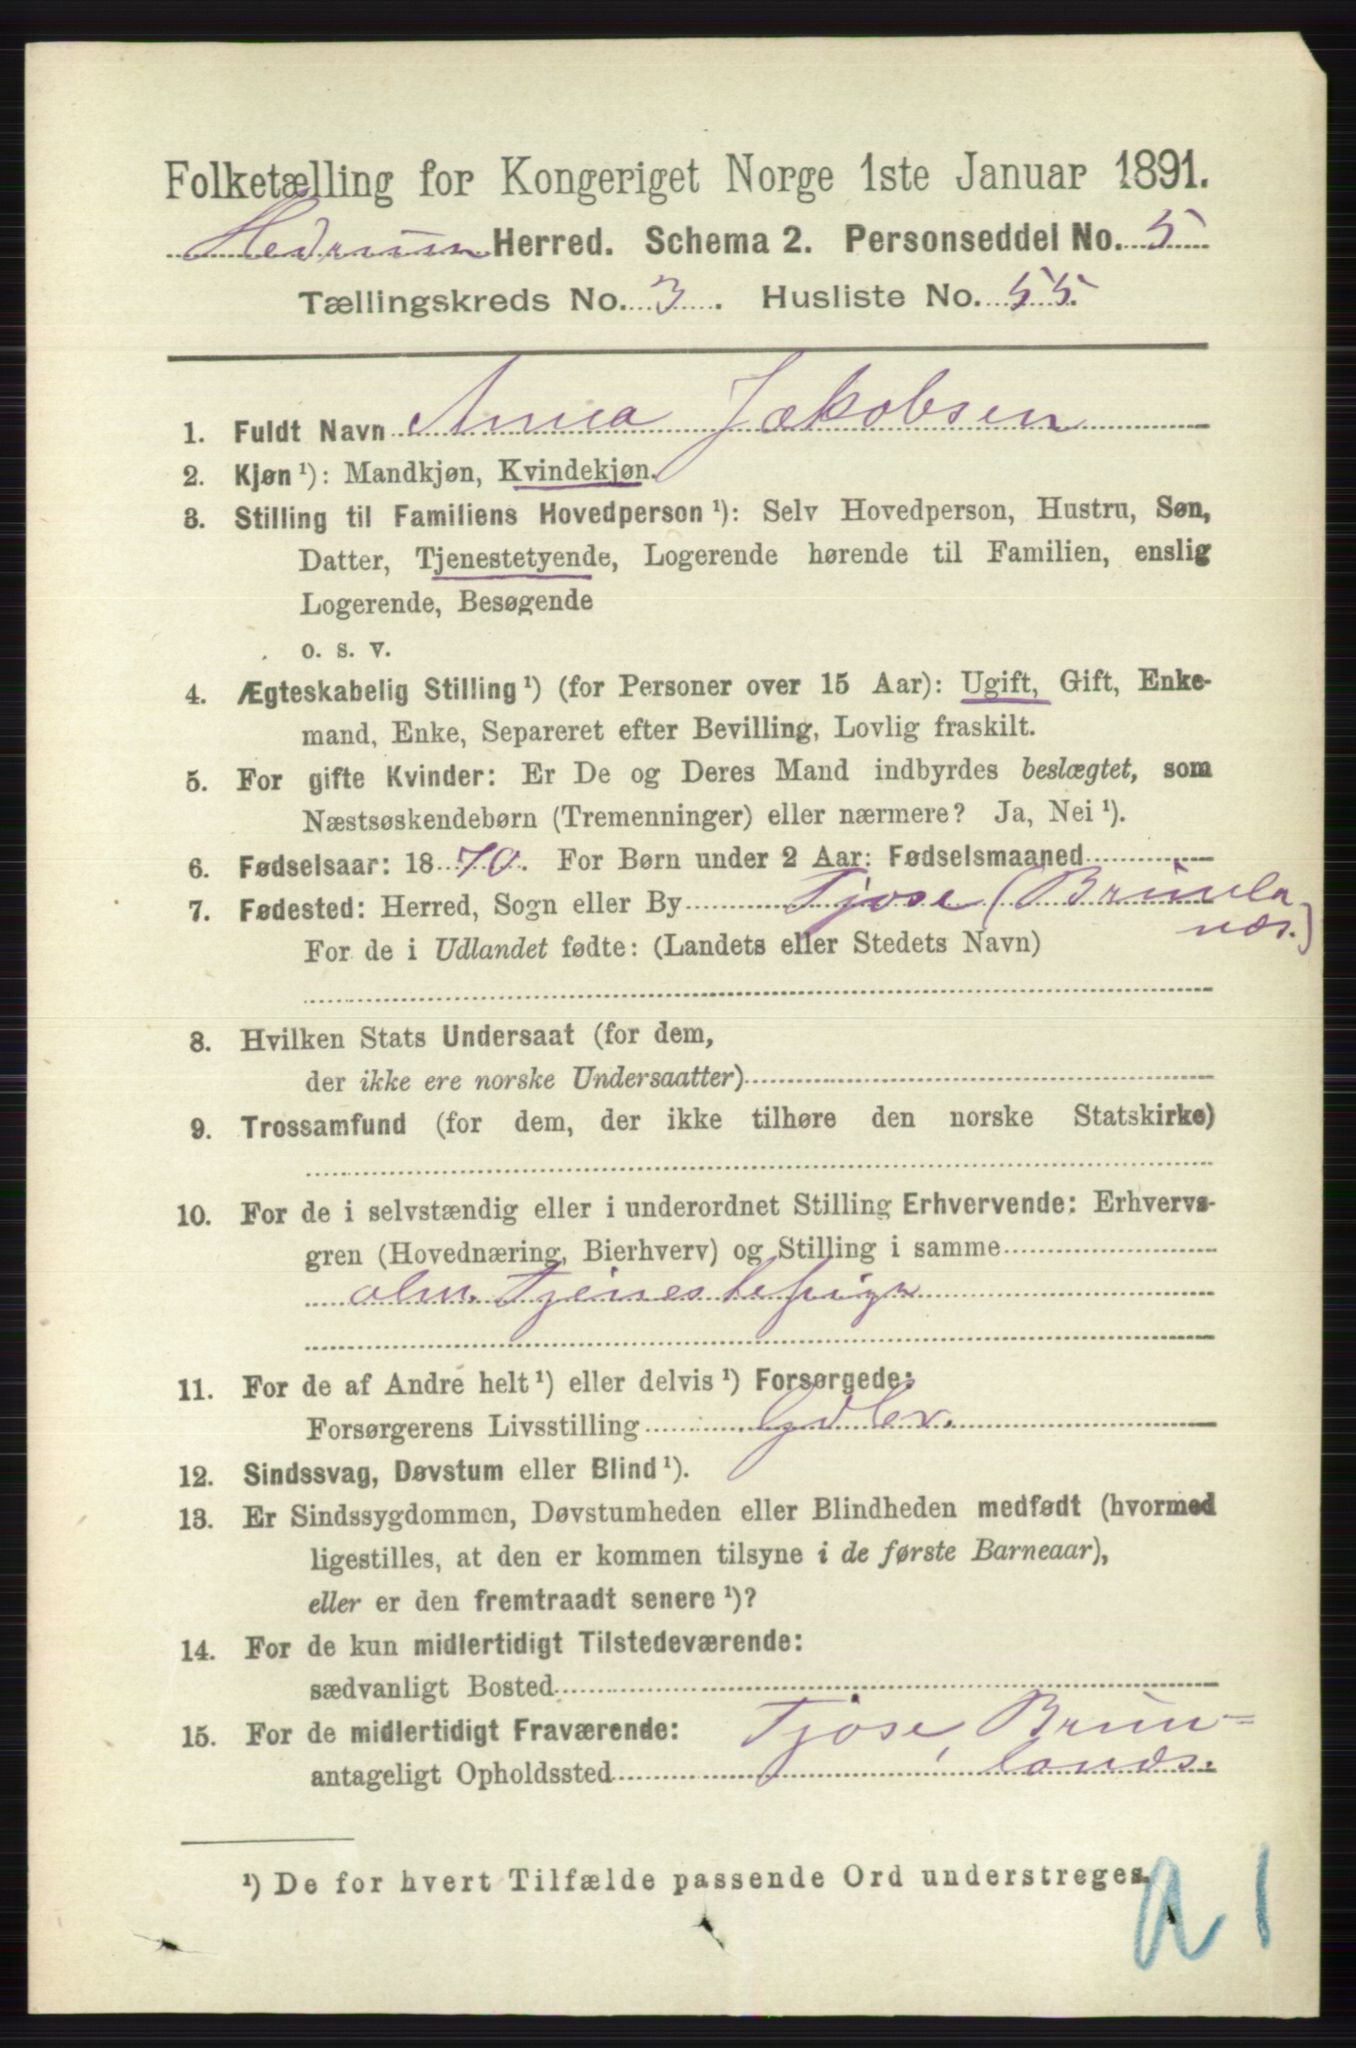 Folketælling for Kongeriget Norge 1ste Januar 1891.
Hedrum Herred. Schema 2. Personseddel No. 5
Tællingskreds No. 3. Husliste No. 55.
1. Fuldt Navn Anna Jakobsen
2. Kjøn ¹): Mandkjøn, Kvindekjøn.
3. Stilling til Familiens Hovedperson ¹): Selv Hovedperson, Hustru, Søn,
Datter, Tjenestetyende, Logerende hørende til Familien, enslig
Logerende, Besøgende
o. s. v.
4. Ægteskabelig Stilling ¹) (for Personer over 15 Aar): Ugift, Gift, Enke-
mand, Enke, Separeret efter Bevilling, Lovlig fraskilt.
5. For gifte Kvinder: Er De og Deres Mand indbyrdes beslægtet, som
Næstsøskendebørn (Tremenninger) eller nærmere? Ja, Nei ¹).
6. Fødselsaar: 1870. For Børn under 2 Aar: Fødselsmaaned
7. Fødested: Herred, Sogn eller By Tjose (Brunla
næs.)
For de i Udlandet fødte: (Landets eller Stedets Navn)
8. Hvilken Stats Undersaat (for dem,
der ikke ere norske Undersaatter)
9. Trossamfund (for dem, der ikke tilhøre den norske Statskirke)
10. For de i selvstændig eller i underordnet Stilling Erhvervende: Erhvervs-
gren (Hovednæring, Bierhverv) og Stilling i samme
alm. Tjenestepige
11. For de af Andre helt ¹) eller delvis ¹) Forsørgede:
Forsørgerens Livsstilling Gdbr.
12. Sindssvag, Døvstum eller Blind ¹).
13. Er Sindssygdommen, Døvstumheden eller Blindheden medfødt (hvormed
ligestilles, at den er kommen tilsyne i de første Barneaar),
eller er den fremtraadt senere ¹)?
14. For de kun midlertidigt Tilstedeværende:
sædvanligt Bosted
15. For de midlertidigt Fraværende: Tjose, Brun-
antageligt Opholdssted lanæs.
¹) De for hvert Tilfælde passende Ord understreges.